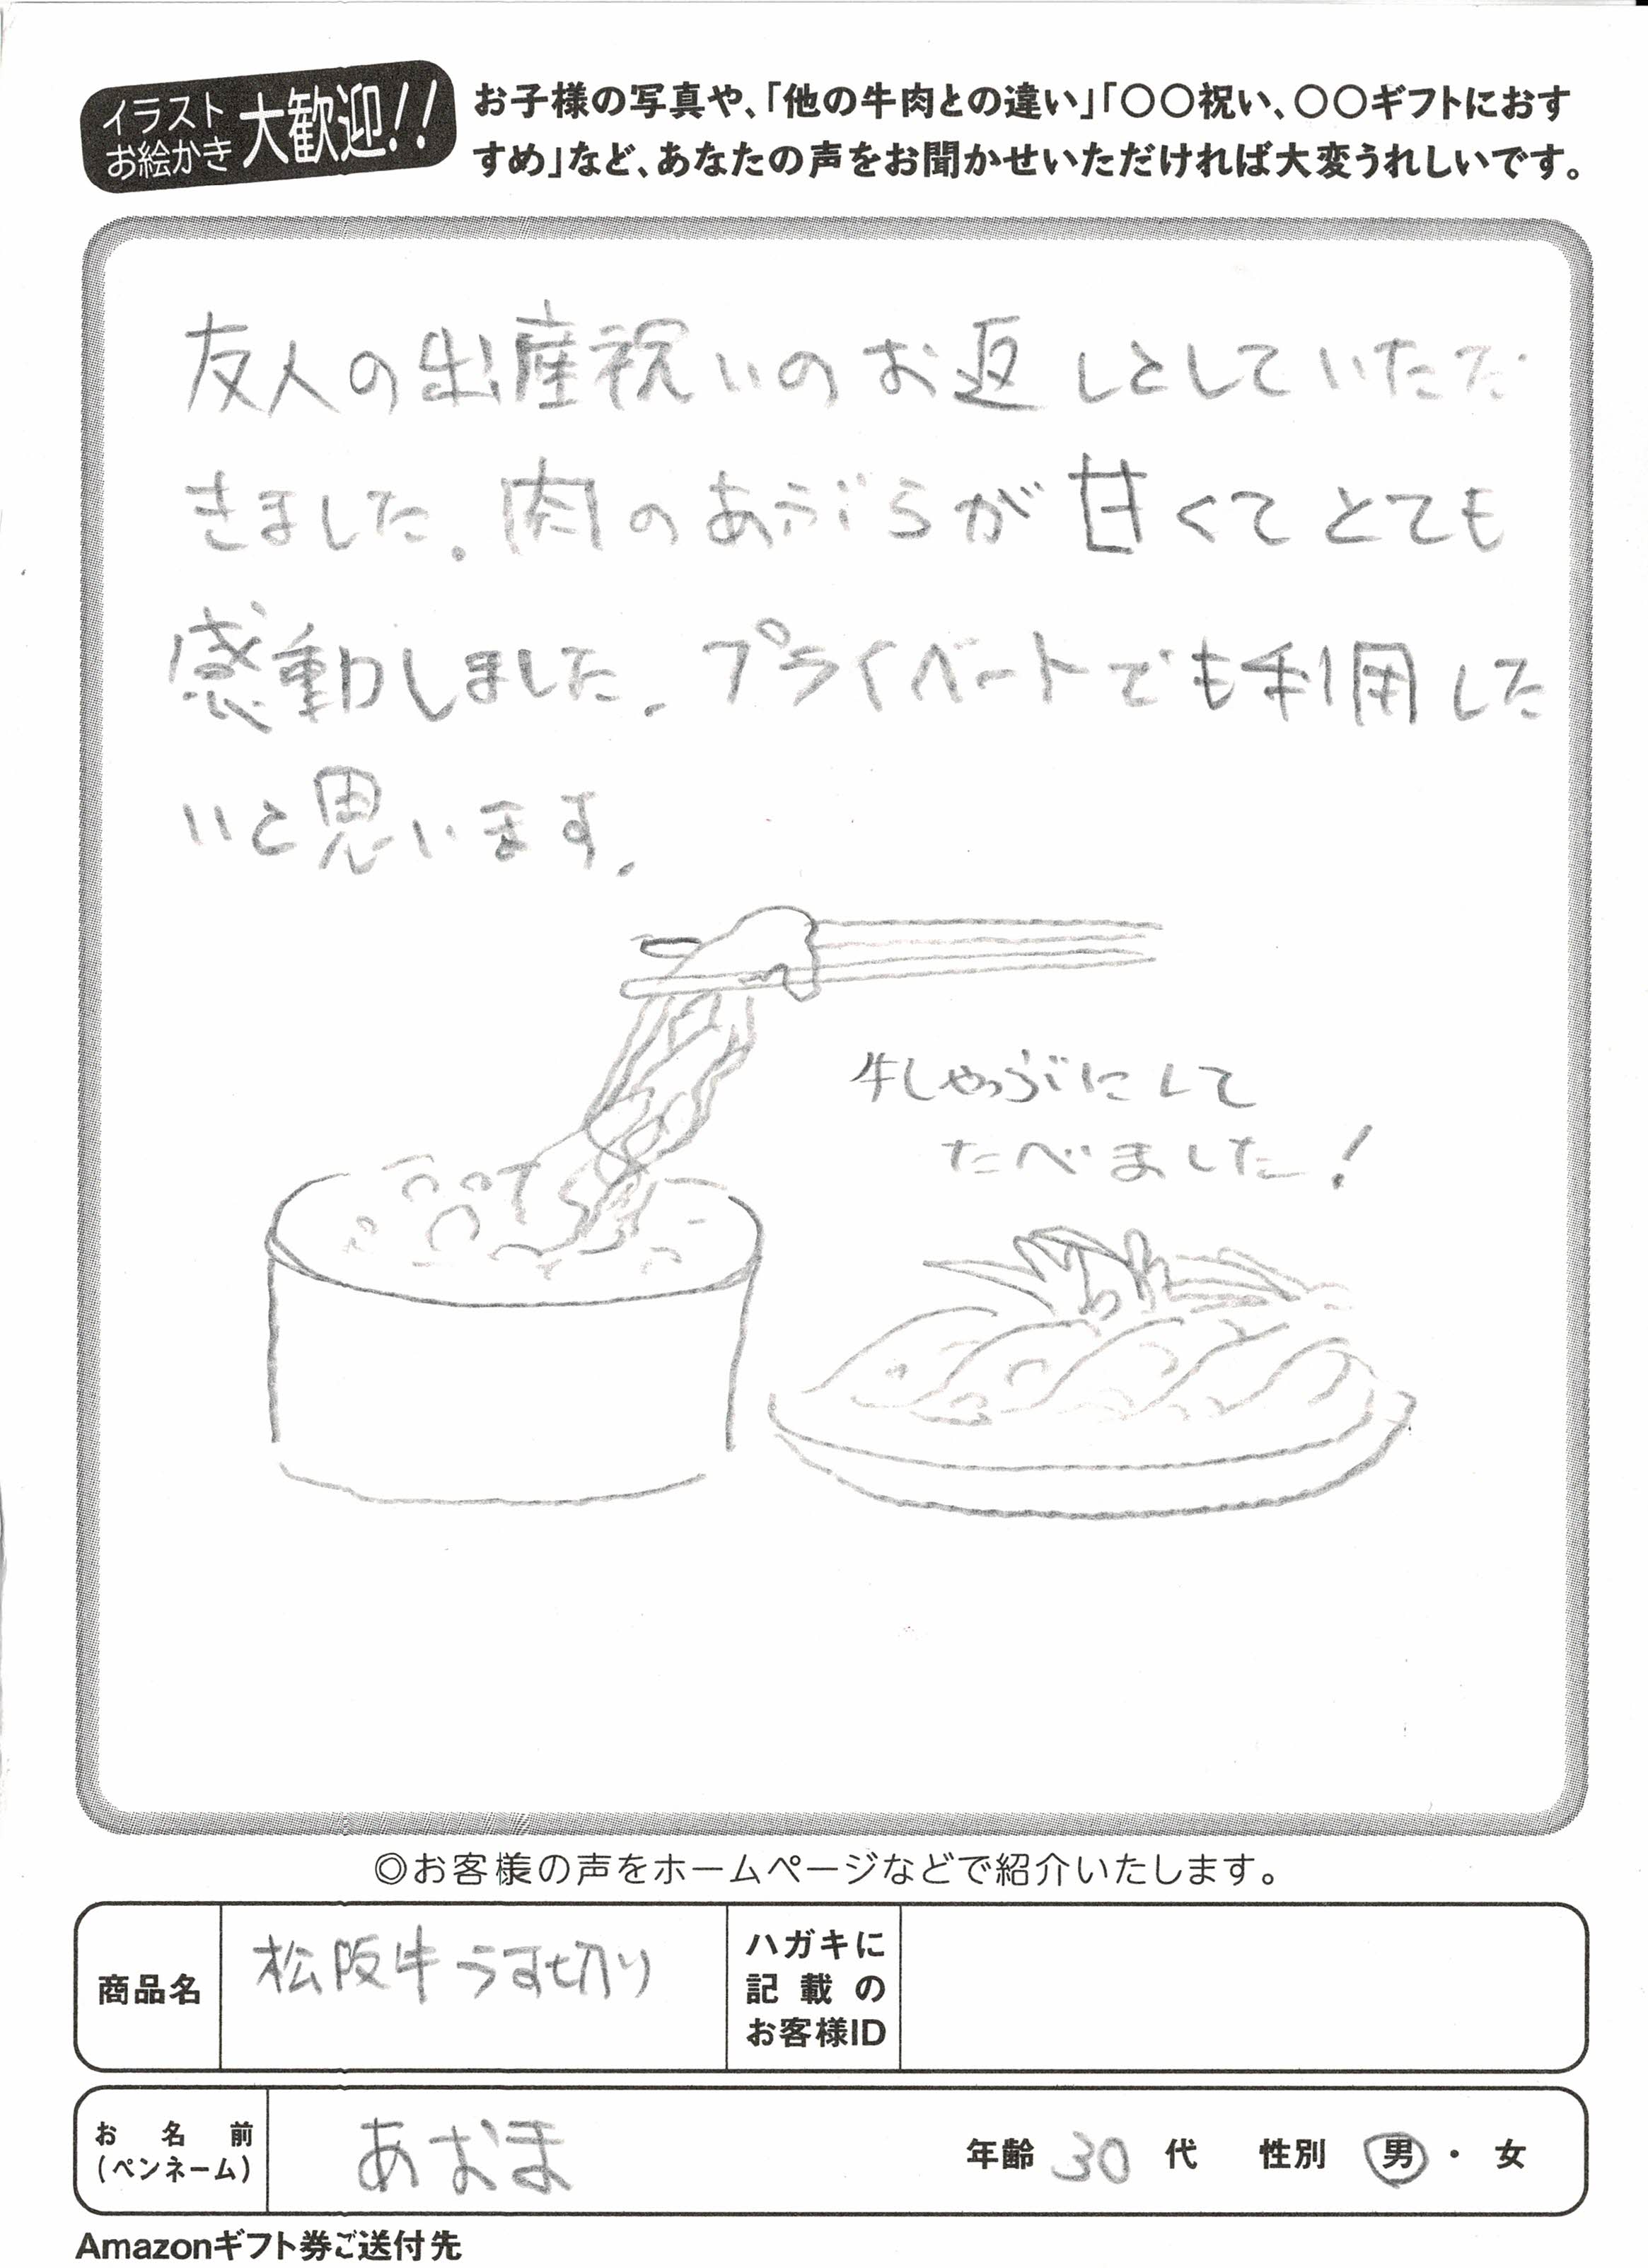 イラスト
お絵かき
大歓迎!!
お子様の写真や、「他の牛肉との違い」「〇〇祝い、〇〇ギフトにおす
すめ」など、あなたの声をお聞かせいただければ大変うれしいです。
友人の出産祝いのお返しとしていただ
きました。肉のあぶらが甘くてとても
感動しました。プライベートでも利用した
いと思います。
牛しゃっぶにして
たべました!
◎お客様の声をホームページなどで紹介いたします。
商品名
松阪牛うす切り
ハガキに
記載の
お客様ID
お名前
(ペンネーム)
あおま
年齢 30 代 性別 男・女
Amazonギフト券ご送付先